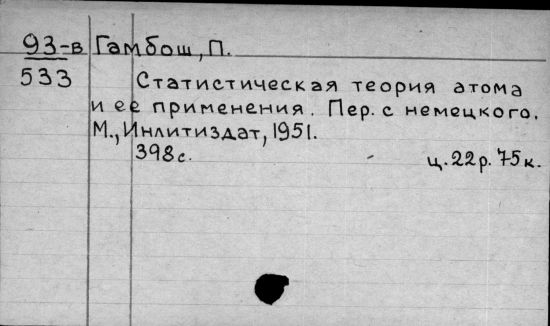 93-в Гамбош, П.
533 Статистическая теория атома
и ее применения. Пер. с немецкого.
М., Инлитиздат, 1951.
398 с. ц. 22 р. 75 к.